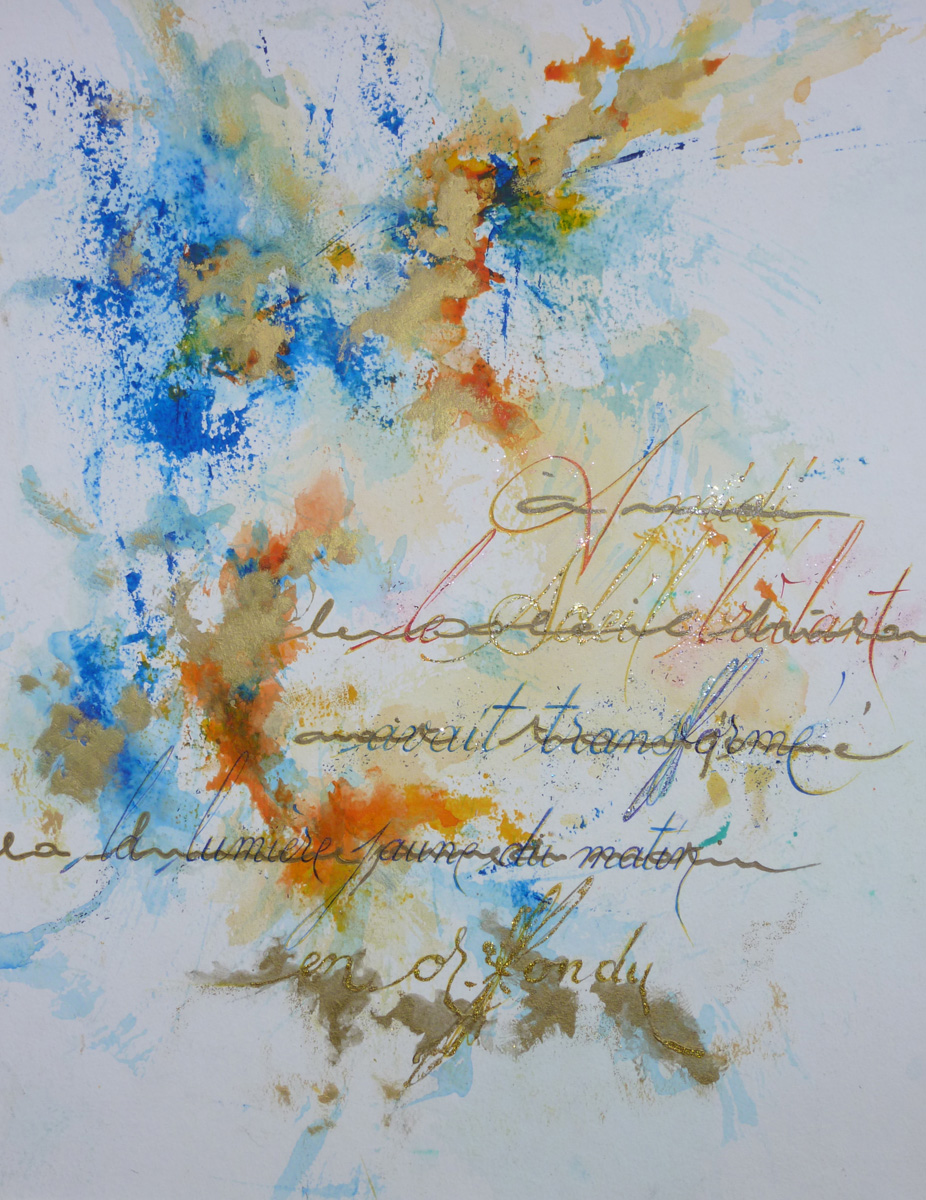 à midi
le soleil brûlant
avait transformé
la lumière jaune du matin
en or fondu